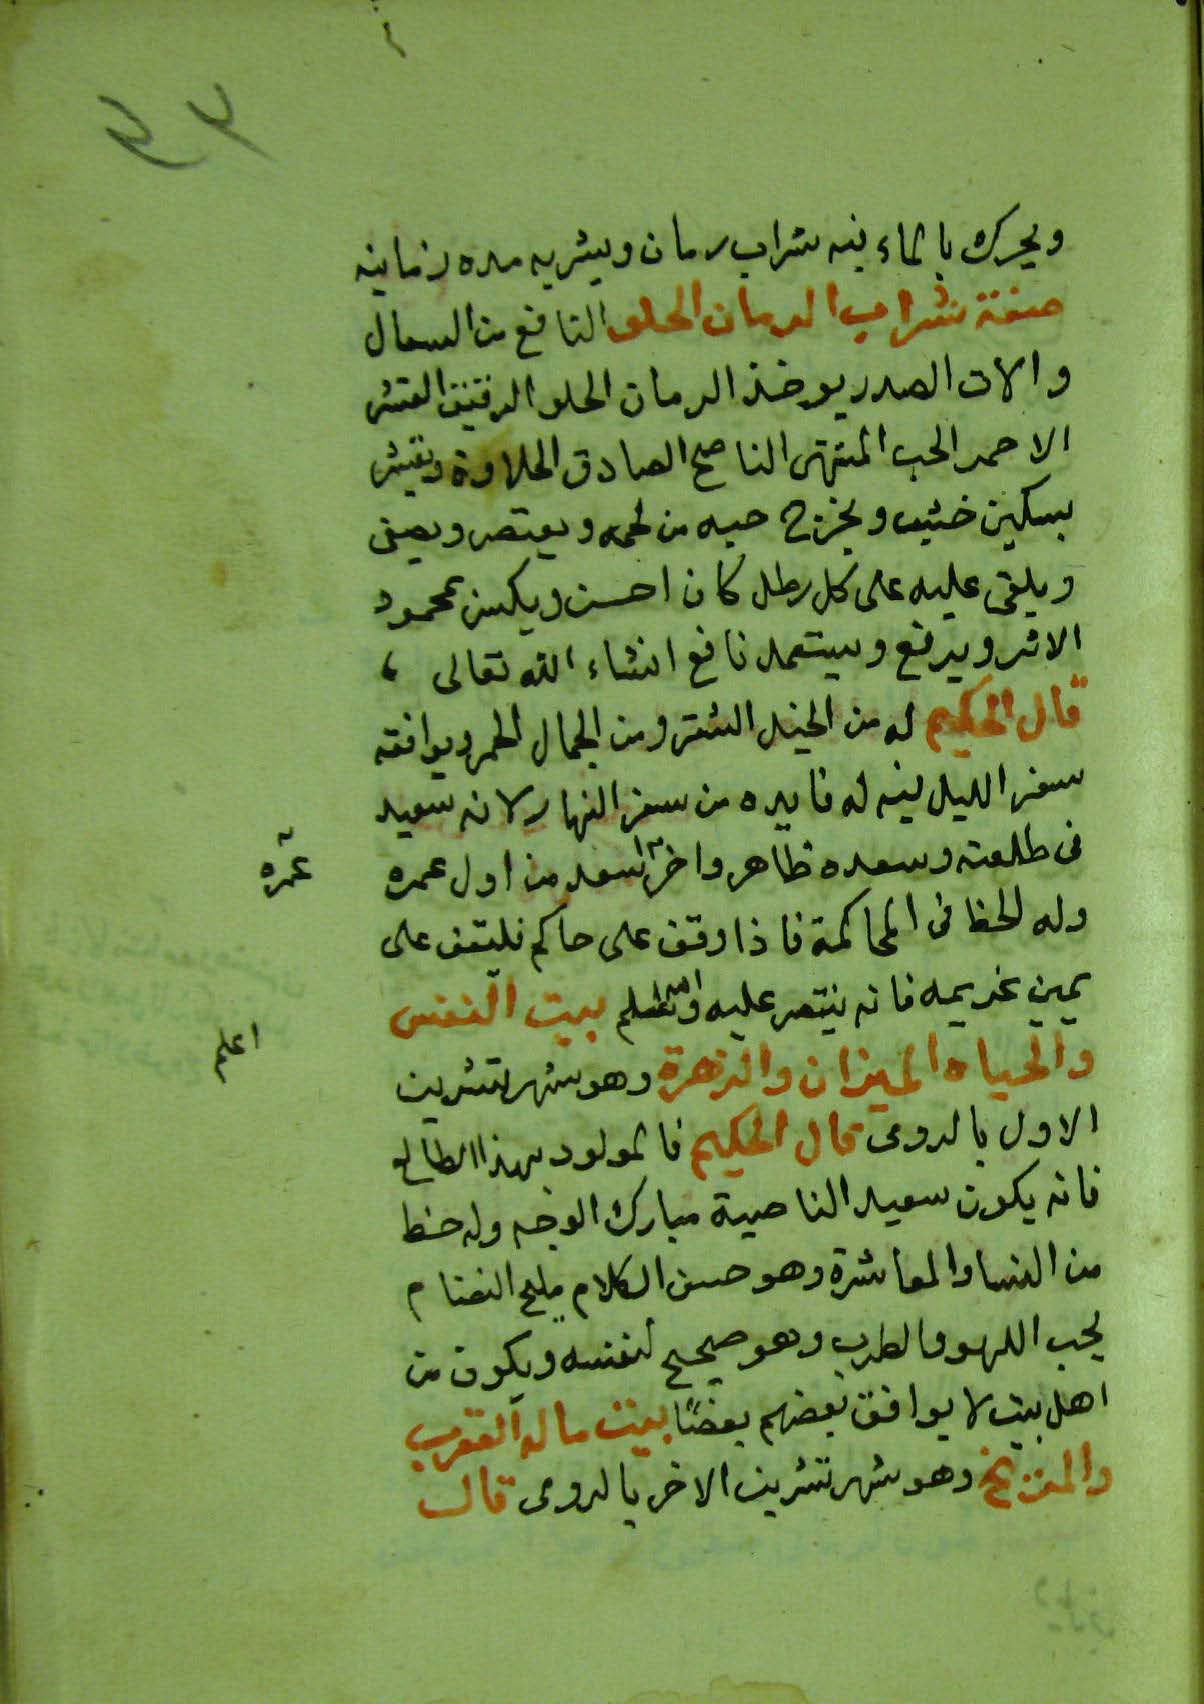 ويحرك بالماء فيه شراب رمان ويشربه مده زمانيه
صفة شراب الرمان الحلو النافع من السعال
والات الصدر يوخذ الرمان الحلو الرقيق القشر
الاحمر الحب المنتهى الناضج الصادق الحلاوة ويقشر
بسكين خشب ويخرج حبه من لحمه ويعتصر ويصفى
ويلقى عليه على كل رطل كان احسن ويكن محمود
الاثر ويرفع ويستعمل نافع انشاء الله تعالى
قال الحكيم له من الخيل الشقر ومن الجمال الحمر ويوافقه
سفر الليل فيه له فايده من سفر النهار لانه سعيد
فى طلعته وسعده ظاهر واخره اسعد من اول عمره
عمره
وله الحظ فى المحاكمة فاذا وقف على حاكم فليقف على
يمين غريمه فانه ينتصر عليه والله اعلم بيت النفس
اعلم
والحياه الميزان والزهرة وهو شهر تشرين
الاول بالرومى قال الحكيم فالمولود بهذا الطالع
فانه يكون سعيد الناصية مبارك الوجه وله حظ
من النسا والمعاشرة وهو حسن الكلام مليح النظام
يحب اللهو والطرب وهو صحيح لنفسه ويكون من
اهل بيت لا يوافق بعضهم بعضًا بيت ماله العقرب
والمريخ وهو شهر تشرين الاخر بالرومى قال